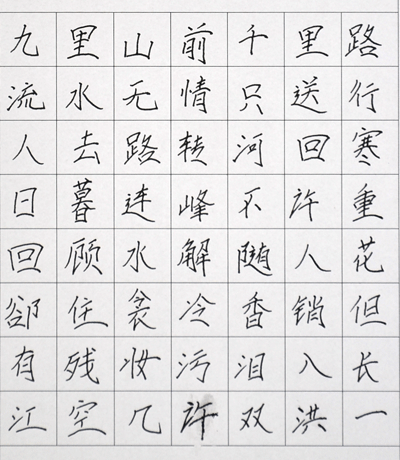 九里山前千里路
流水无情只送行
人去路转河回寒
日暮连峰不许重
回顾水解随人花
卻住衾冷香销但
有残妆污泪入长
江空几许双洪一